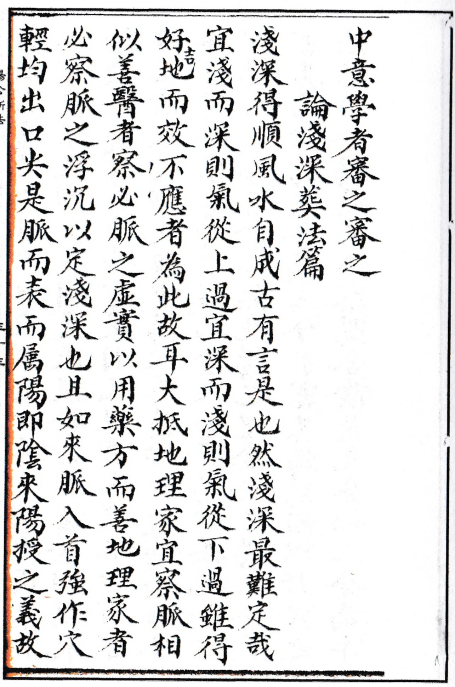 中意學者審之審之
論淺深葬法篇
淺深得順風水自成古有言是也然淺深最難定哉
宜淺而深則氣從上過宜深而淺則氣從下過雖得
好吉地而效不應者為此故耳大抵地理家宜察脈相
似善醫者察必脈之虛實以用藥方而善地理家者
必察脈之浮沉以定淺深也且如來脈入首強作穴
輕均出口尖是脈而表而属陽即陰來陽授之義故